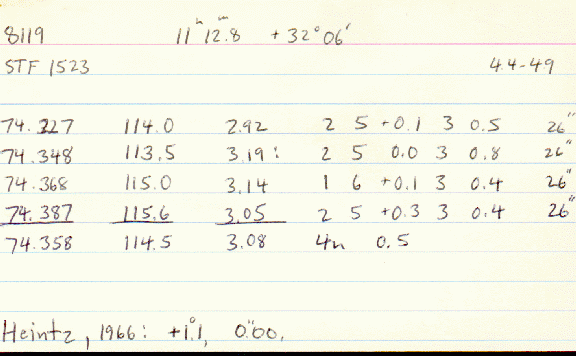 8119 11ʰ12ᵐ.8 +32°06'
STF 1523 4.4-49
74.227 114.0 2.92 2 5 +0.1 3 0.5 26"
74.348 113.5 3.19: 2 5 0.0 3 0.8 26"
74.368 115.0 3.14 1 6 +0.1 3 0.4 26"
74.387 115.6 3.05 2 5 +0.3 3 0.4 26"
74.358 114.5 3.08 4n 0.5
Heintz, 1966: +1°.1, 0".00.